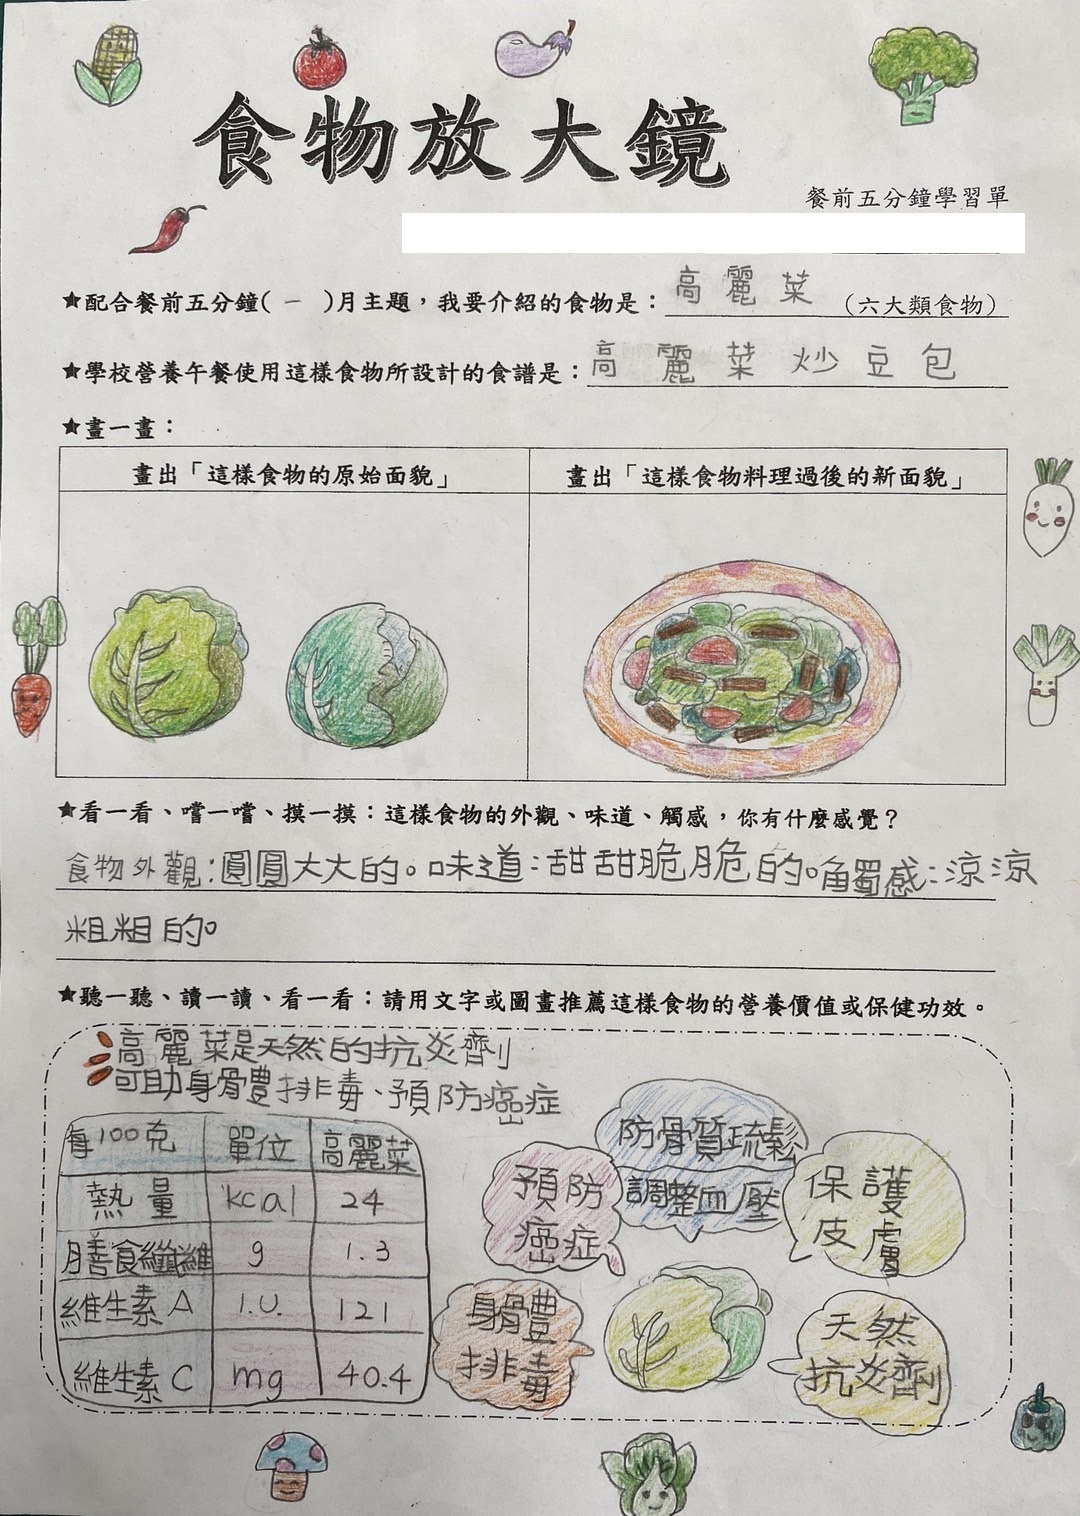 食物放大鏡
餐前五分鐘學習單
★配合餐前五分鐘( 一 )月主題，我要介紹的食物是：高麗菜（六大類食物）
★學校營養午餐使用這樣食物所設計的食譜是：高麗菜炒豆包
★畫一畫：
畫出「這樣食物的原始面貌」
畫出「這樣食物料理過後的新面貌」
★看一看、嚐一嚐、摸一摸：這樣食物的外觀、味道、觸感，你有什麼感覺？
食物外觀：圓圓大大的。味道：甜甜脆脆的。觸感：涼涼
粗粗的。
★聽一聽、讀一讀、看一看：請用文字或圖畫推薦這樣食物的營養價值或保健功效。
高麗菜是天然的抗炎劑
可助身體排毒、預防癌症
每100克 單位 高麗菜
熱量 kcal 24
膳食纖維 g 1.3
維生素A I.U. 121
維生素C mg 40.4
防骨質琉鬆
調整血壓
預防
癌症
保護
皮膚
身體
排毒
天然
抗炎劑